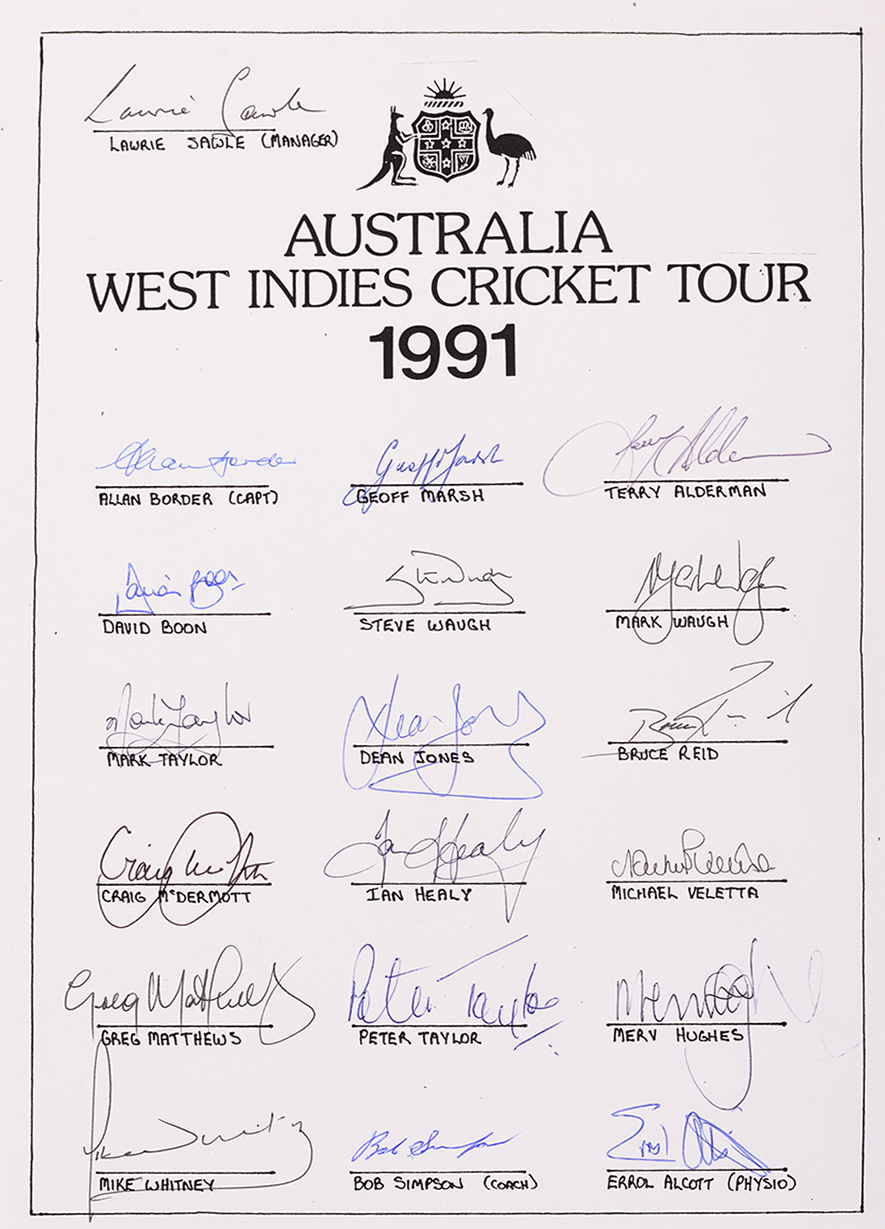 Lawrie Sawle
LAWRIE SAWLE (MANAGER)
AUSTRALIA
WEST INDIES CRICKET TOUR
1991
Allan Border Geoff Marsh Terry Alderman
ALLAN BORDER (CAPT) GEOFF MARSH TERRY ALDERMAN
David Boon S Waugh
DAVID BOON STEVE WAUGH MARK WAUGH
Mark Taylor Dean Jones Bruce Reid
MARK TAYLOR DEAN JONES BRUCE REID
Craig McDermott Ian Healy
CRAIG McDERMOTT IAN HEALY MICHAEL VELETTA
Greg Matthews Peter Taylor Merv Hughes
GREG MATTHEWS PETER TAYLOR MERV HUGHES
Mike Whitney Bob Simpson Errol Alcott
MIKE WHITNEY BOB SIMPSON (COACH) ERROL ALCOTT (PHYSIO)